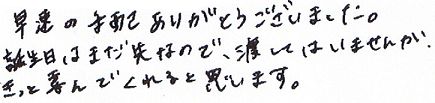 早速の手配ありがとうございました。
誕生日はまだ先なので、渡してはいませんが、
きっと喜んでくれると思います。